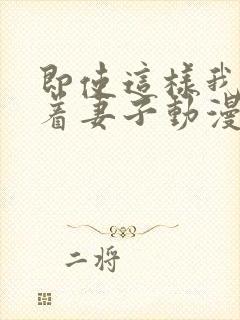 即使這樣我
著妻子動漫
二將